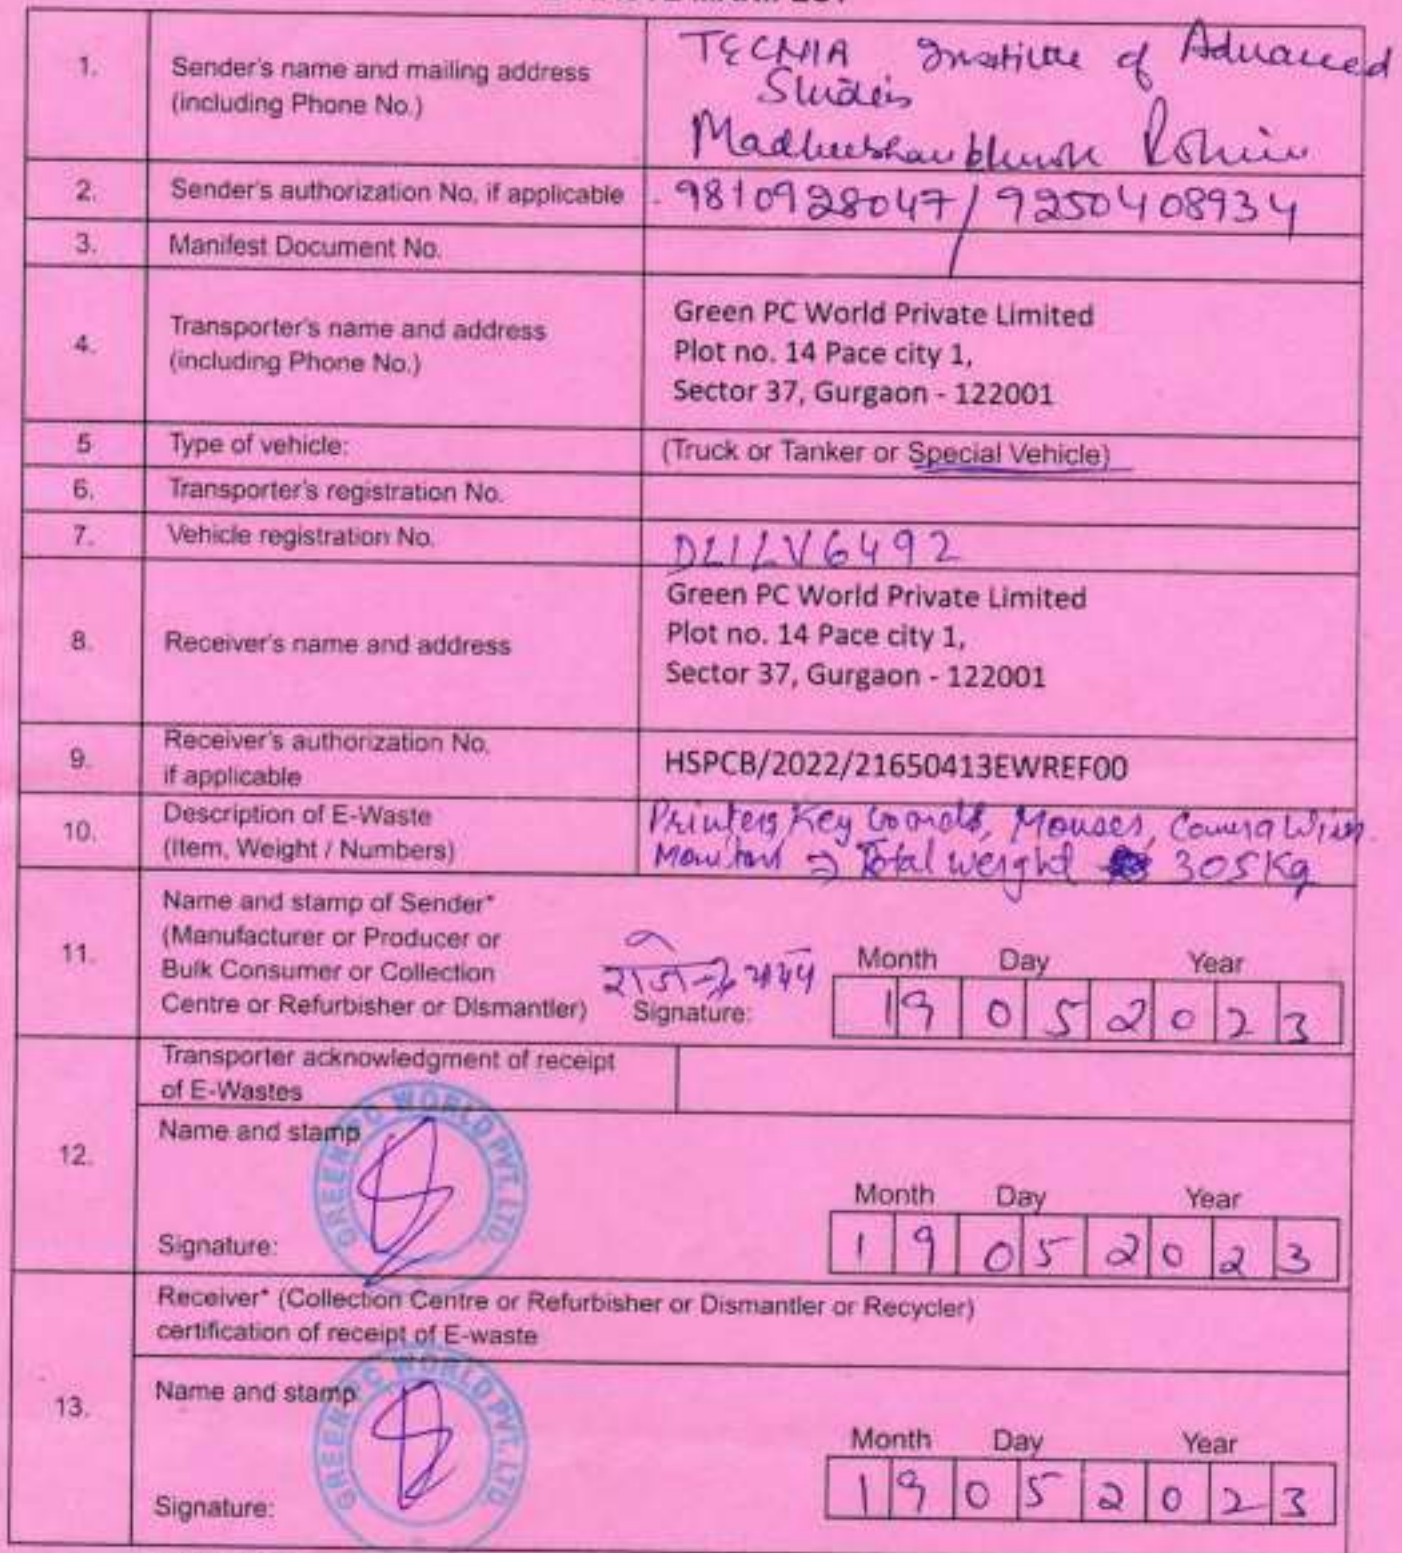 1. Sender's name and mailing address (including Phone No.)
TECNIA Institute of Advanced
Studies
Madhubhan Rohini
2. Sender's authorization No, if applicable
9810928047/9250408934
3. Manifest Document No.
4. Transporter's name and address
(including Phone No.)
Green PC World Private Limited
Plot no. 14 Pace city 1,
Sector 37, Gurgaon - 122001
5 Type of vehicle: (Truck or Tanker or Special Vehicle)
6. Transporter's registration No.
7. Vehicle registration No. DL1LV6492
8. Receiver's name and address
Green PC World Private Limited
Plot no. 14 Pace city 1,
Sector 37, Gurgaon - 122001
9. Receiver's authorization No.
if applicable
HSPCB/2022/21650413EWREF00
10. Description of E-Waste
(Item, Weight / Numbers)
Printers, Key boards, Mouses, Camera Wire
Monitors => Total weight 305Kg
11. Name and stamp of Sender*
(Manufacturer or Producer or
Bulk Consumer or Collection
Centre or Refurbisher or Dismantler) Signature:
Month Day Year
19 05 2023
12. Transporter acknowledgment of receipt
of E-Wastes
Name and stamp
GREEN PC WORLD PVT. LTD.
Signature:
Month Day Year
19 05 2023
13. Receiver* (Collection Centre or Refurbisher or Dismantler or Recycler)
certification of receipt of E-waste
Name and stamp:
GREEN PC WORLD PVT. LTD.
Signature:
Month Day Year
19 05 2023